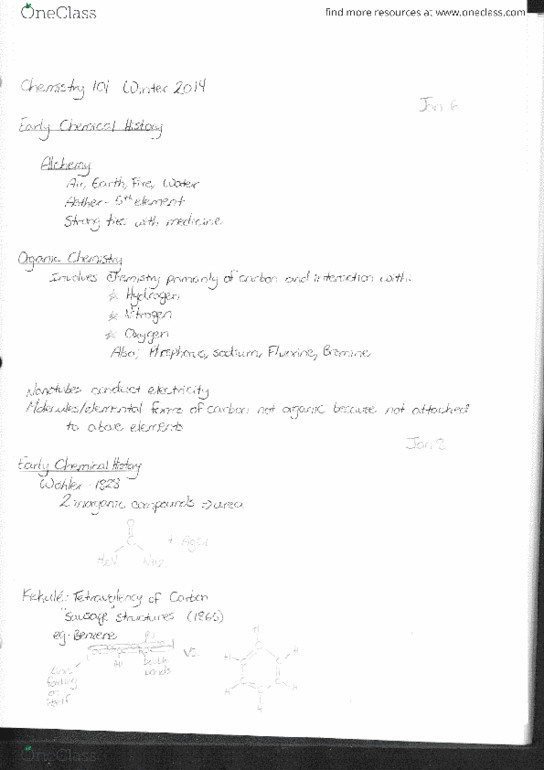 OneClass find more resources at www.oneclass.com
Chemistry 101 Winter 2014
Jan 6
Early Chemical History
Alchemy
Air, Earth, Fire, Water
Aether - 5th element
Strong ties with medicine
Organic Chemistry
Involves Chemistry primarily of carbon and interaction with:
☆ Hydrogen
☆ Nitrogen
☆ Oxygen
Also; sodium, Fluorine, Bromine
Nanotubes conduct electricity
Molecules/elemental forms of carbon not organic because not attached
to above elements
Jan 8
Early Chemical History
Wohler - 1828
2 inorganic compounds ⇒ urea
O
H₂N NH₂ + AgCl
Kekulé: Tetravalency of Carbon
"Sausage" structures (1865)
eg. Benzene
vs.
double
bonds
folding
on
itself
H
H H
H H
H
OneClass